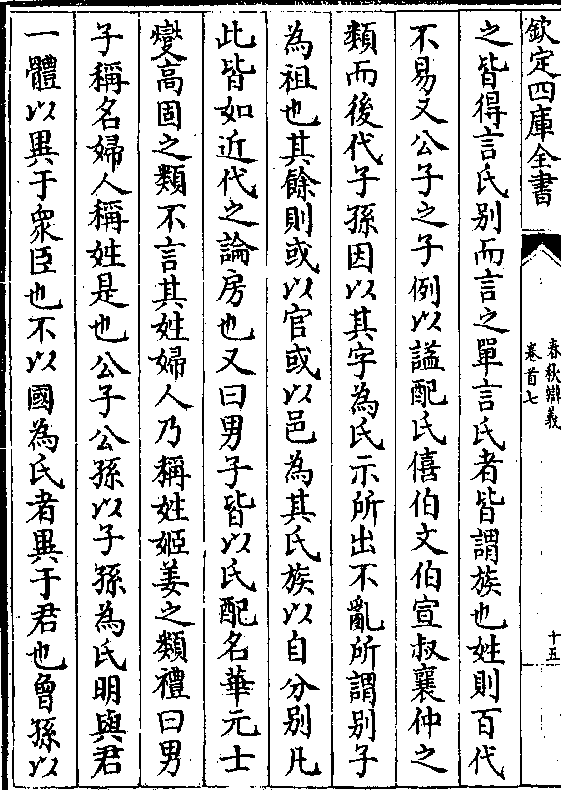 欽定四庫全書
春秋辯義
卷首七
十五
之皆得言氏别而言之單言氏者皆謂族也姓則百代
不易又公子之子例以諡配氏僖伯文伯宣叔襄仲之
類而後代子孫因以其字為氏示所出不亂所謂别子
為祖也其餘則或以官或以邑為其氏族以自分别凡
此皆如近代之論房也又曰男子皆以氏配名華元士
燮高固之類不言其姓婦人乃稱姓姬姜之類禮曰男
子稱名婦人稱姓是也公子公孫以子孫為氏明與君
一體以異于衆臣也不以國為氏者異于君也曾孫以